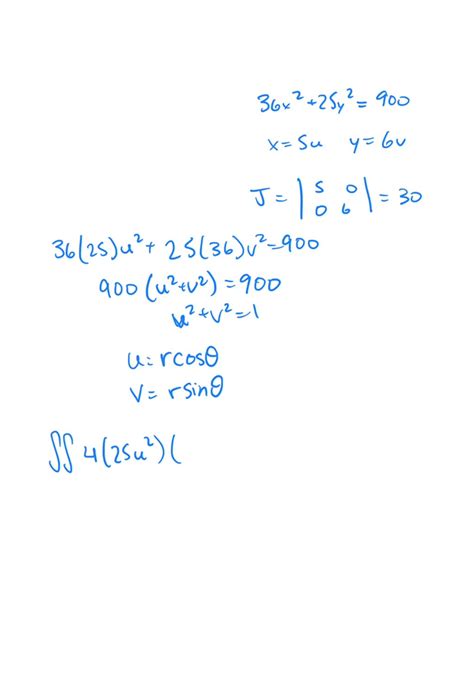 36x²+25y²=900
x=5u y=6v
J=|5 0|=30
|0 6|
36(25)u²+25(36)v²=900
900(u²+v²)=900
u²+v²=1
u=rcosθ
v=rsinθ
∬4(25u²)(